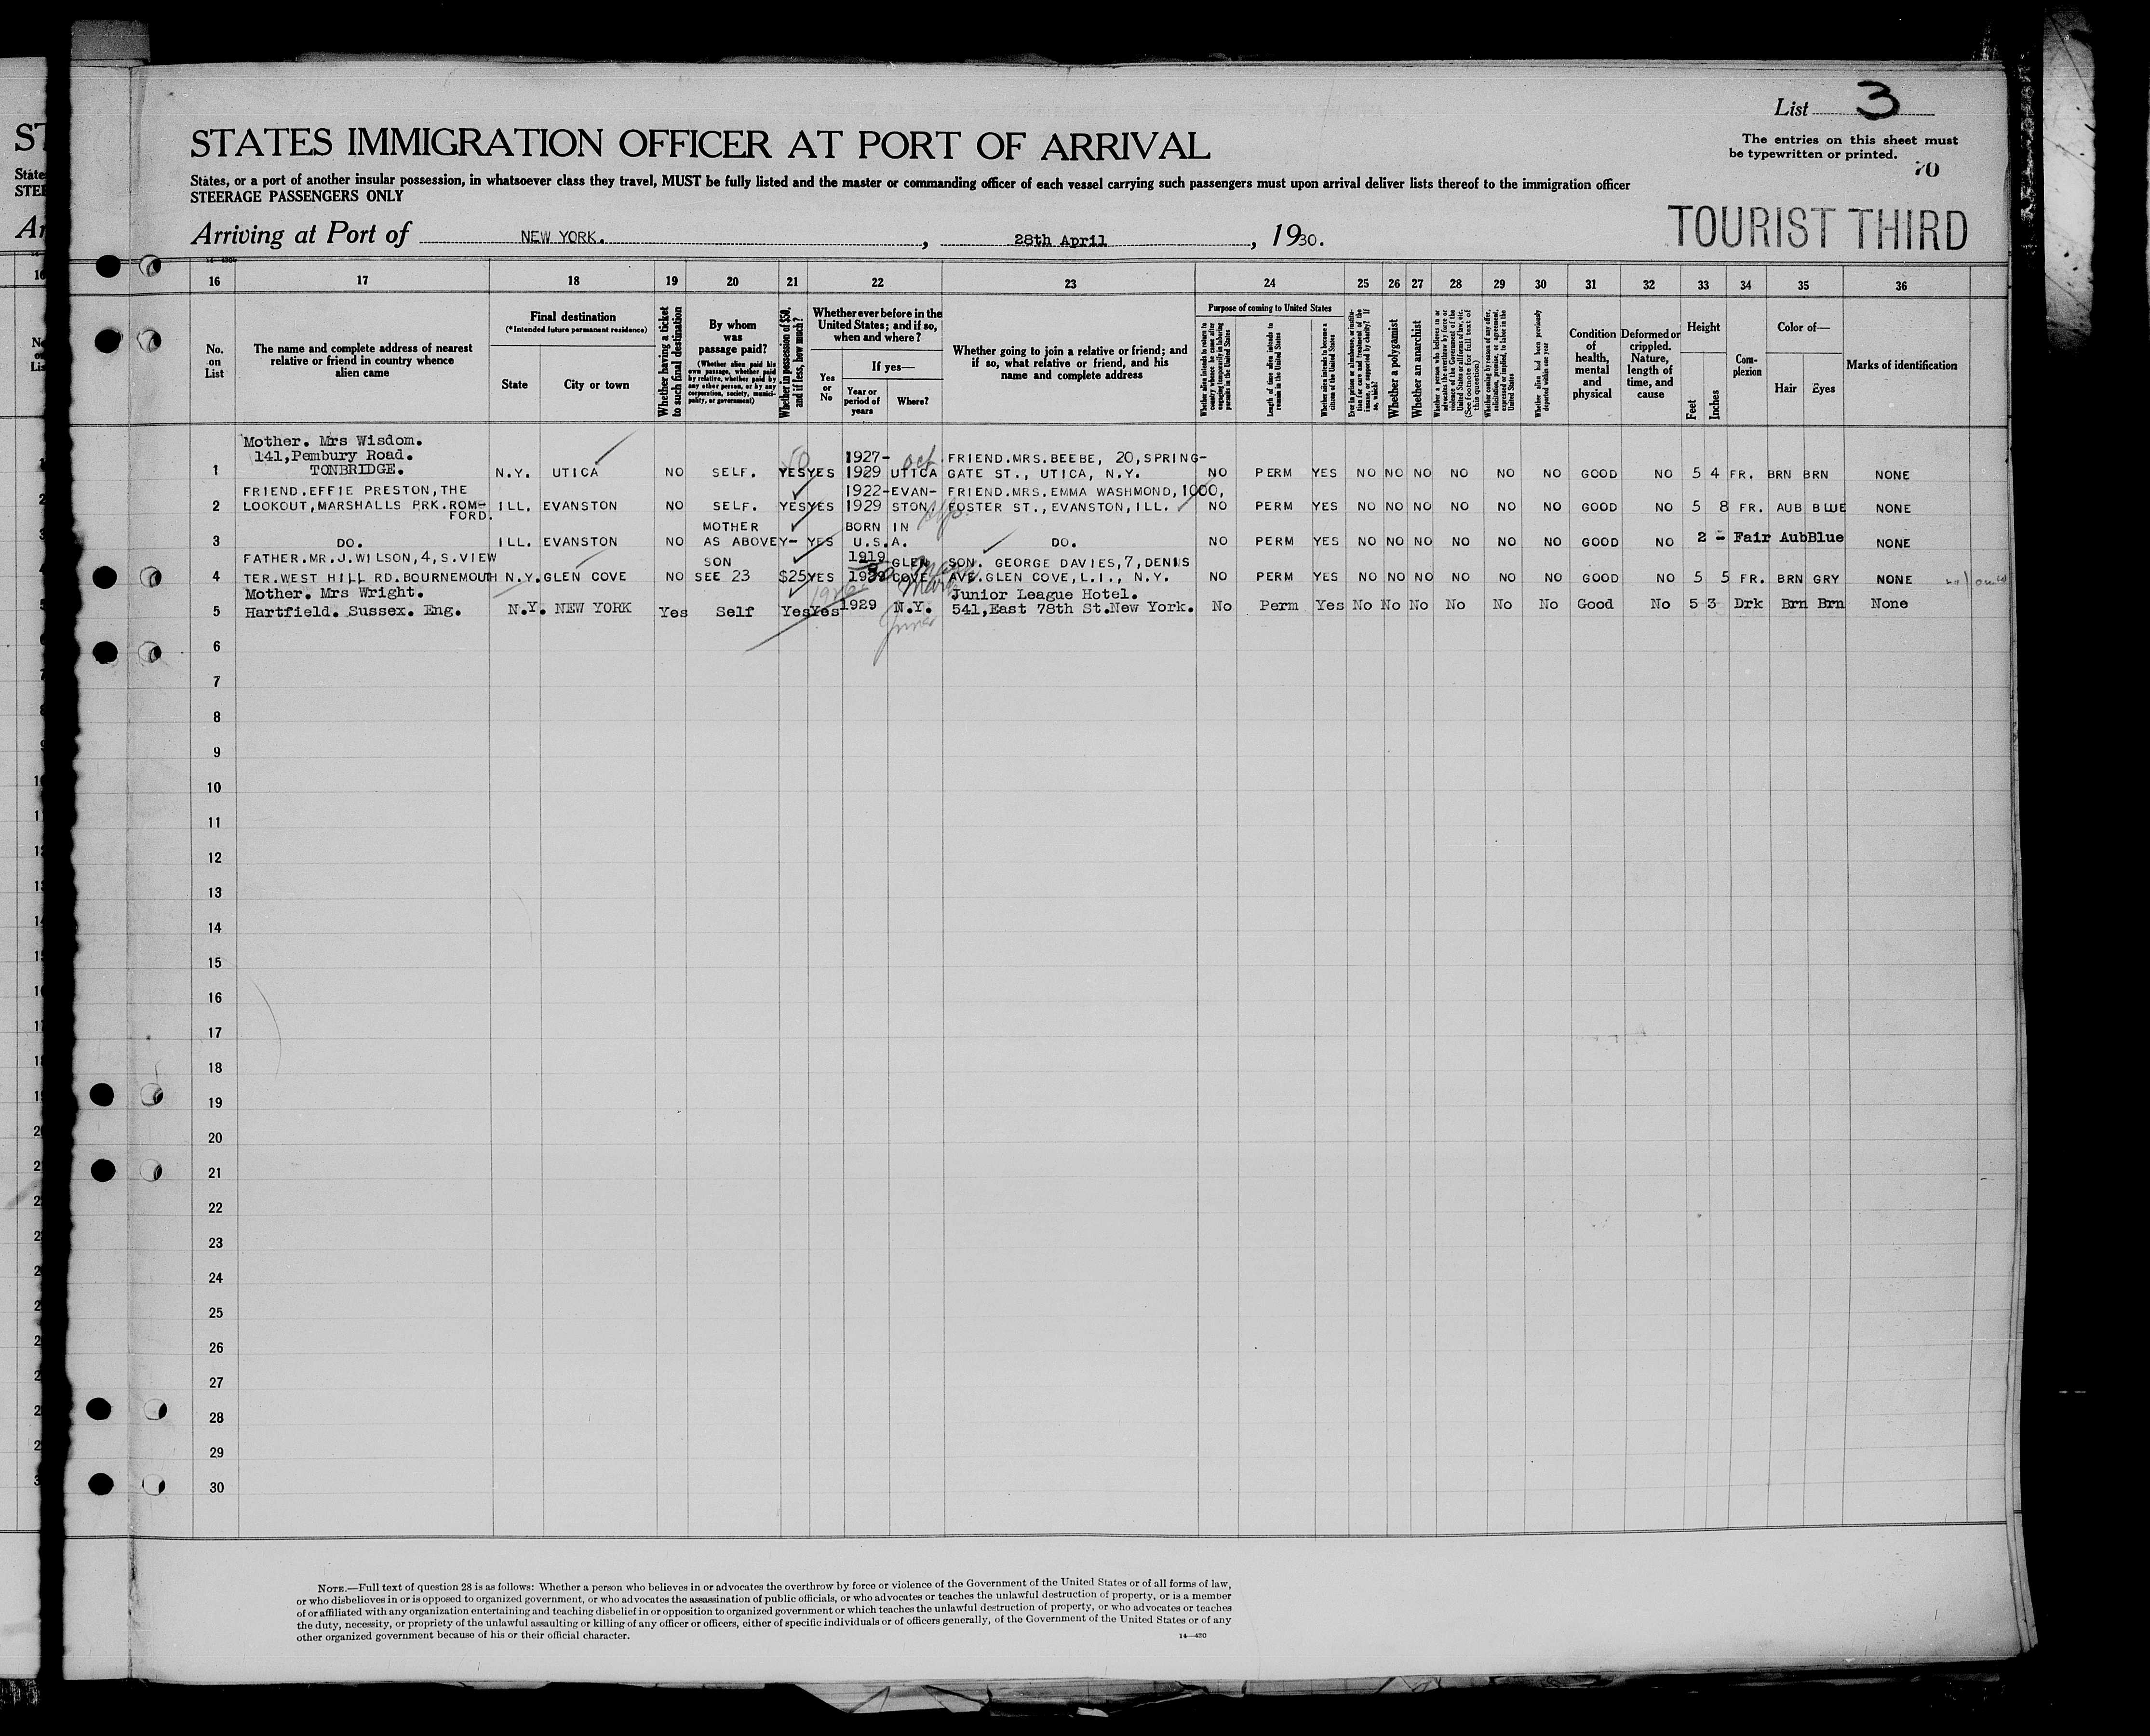 List 3
The entries on this sheet must
be typewritten or printed.
70
STATES IMMIGRATION OFFICER AT PORT OF ARRIVAL
States, or a port of another insular possession, in whatsoever class they travel, MUST be fully listed and the master or commanding officer of each vessel carrying such passengers must upon arrival deliver lists thereof to the immigration officer
STEERAGE PASSENGERS ONLY
TOURIST THIRD
Arriving at Port of NEW YORK. , 28th April , 1930.
16 17 18 19 20 21 22 23 24 25 26 27 28 29 30 31 32 33 34 35 36
No. on List
The name and complete address of nearest
relative or friend in country whence
alien came
Final destination
(*Intended future permanent residence)
State
City or town
Whether having a ticket
to such final destination
By whom
was
passage paid?
(Whether alien paid his
own passage, whether paid
by relative, whether paid by
any other person, or by any
corporation, society, munici-
pality, or government)
Whether in possession of $50,
and if less, how much?
Whether ever before in the
United States; and if so,
when and where?
Yes
or
No
If yes—
Year or
period of
years
Where?
Whether going to join a relative or friend; and
if so, what relative or friend, and his
name and complete address
Purpose of coming to United States
Whether alien intends to return to
country whence he came after
engaging temporarily in laboring
pursuits in the United States
Length of time alien intends to
remain in the United States
Whether alien intends to become a
citizen of the United States
Ever in prison or almshouse, or institu-
tion for care and treatment of the
insane, or supported by charity? If
so, which?
Whether a polygamist
Whether an anarchist
Whether a person who believes in or
advocates the overthrow by force or
violence of the Government of the
United States or all forms of law, etc.
(See footnote for full text of
this question)
Whether coming by reason of any offer,
solicitation, promise, or agreement,
expressed or implied, to labor in the
United States
Whether alien had been previously
deported within one year
Condition
of
health,
mental
and
physical
Deformed or
crippled.
Nature,
length of
time, and
cause
Height
Feet
Inches
Com-
plexion
Color of—
Hair
Eyes
Marks of identification
Mother. Mrs Wisdom.
141,Pembury Road. 1927- Oct FRIEND.MRS.BEEBE, 20,SPRING-
1 TONBRIDGE. N.Y. UTICA NO SELF. YES YES 1929 UTTCA GATE ST., UTICA, N.Y. NO PERM YES NO NO NO NO NO NO GOOD NO 5 4 FR. BRN BRN NONE
FRIEND.EFFIE PRESTON,THE 1922- EVAN- FRIEND.MRS.EMMA WASHMOND,1000,
2 LOOKOUT,MARSHALLS PRK.ROM- ILL. EVANSTON NO SELF. YES YES 1929 STON FOSTER ST.,EVANSTON,ILL. NO PERM YES NO NO NO NO NO NO GOOD NO 5 8 FR. AUB BLUE NONE
FORD. MOTHER BORN IN
3 DO. ILL. EVANSTON NO AS ABOVE Y- YES U.S.A. DO. NO PERM YES NO NO NO NO NO NO GOOD NO 2 - Fair Aub Blue NONE
FATHER.MR.J.WILSON,4,S.VIEW SON 1919 GLEN SON. GEORGE DAVIES,7,DENIS
4 TER.WEST HILL RD.BOURNEMOUTH N.Y. GLEN COVE NO SEE 23 $25 YES 1930 COVE AVE.GLEN COVE,L.I., N.Y. NO PERM YES NO NO NO NO NO NO GOOD NO 5 5 FR. BRN GRY NONE
Mother. Mrs Wright. Junior League Hotel.
5 Hartfield. Sussex. Eng. N.Y. NEW YORK Yes Self Yes Yes 1929 N.Y. 541,East 78th St.New York. No Perm Yes No No No No No No Good No 5 3 Drk Brn Brn None
6
7
8
9
10
11
12
13
14
15
16
17
18
19
20
21
22
23
24
25
26
27
28
29
30
NOTE.—Full text of question 28 is as follows: Whether a person who believes in or advocates the overthrow by force or violence of the Government of the United States or of all forms of law,
or who disbelieves in or is opposed to organized government, or who advocates the assassination of public officials, or who advocates or teaches the unlawful destruction of property, or is a member
of or affiliated with any organization entertaining and teaching disbelief in or opposition to organized government or which teaches the unlawful destruction of property, or who advocates or teaches
the duty, necessity, or propriety of the unlawful assaulting or killing of any officer or officers, either of specific individuals or of officers generally, of the Government of the United States or of any
other organized government because of his or their official character.
14—430